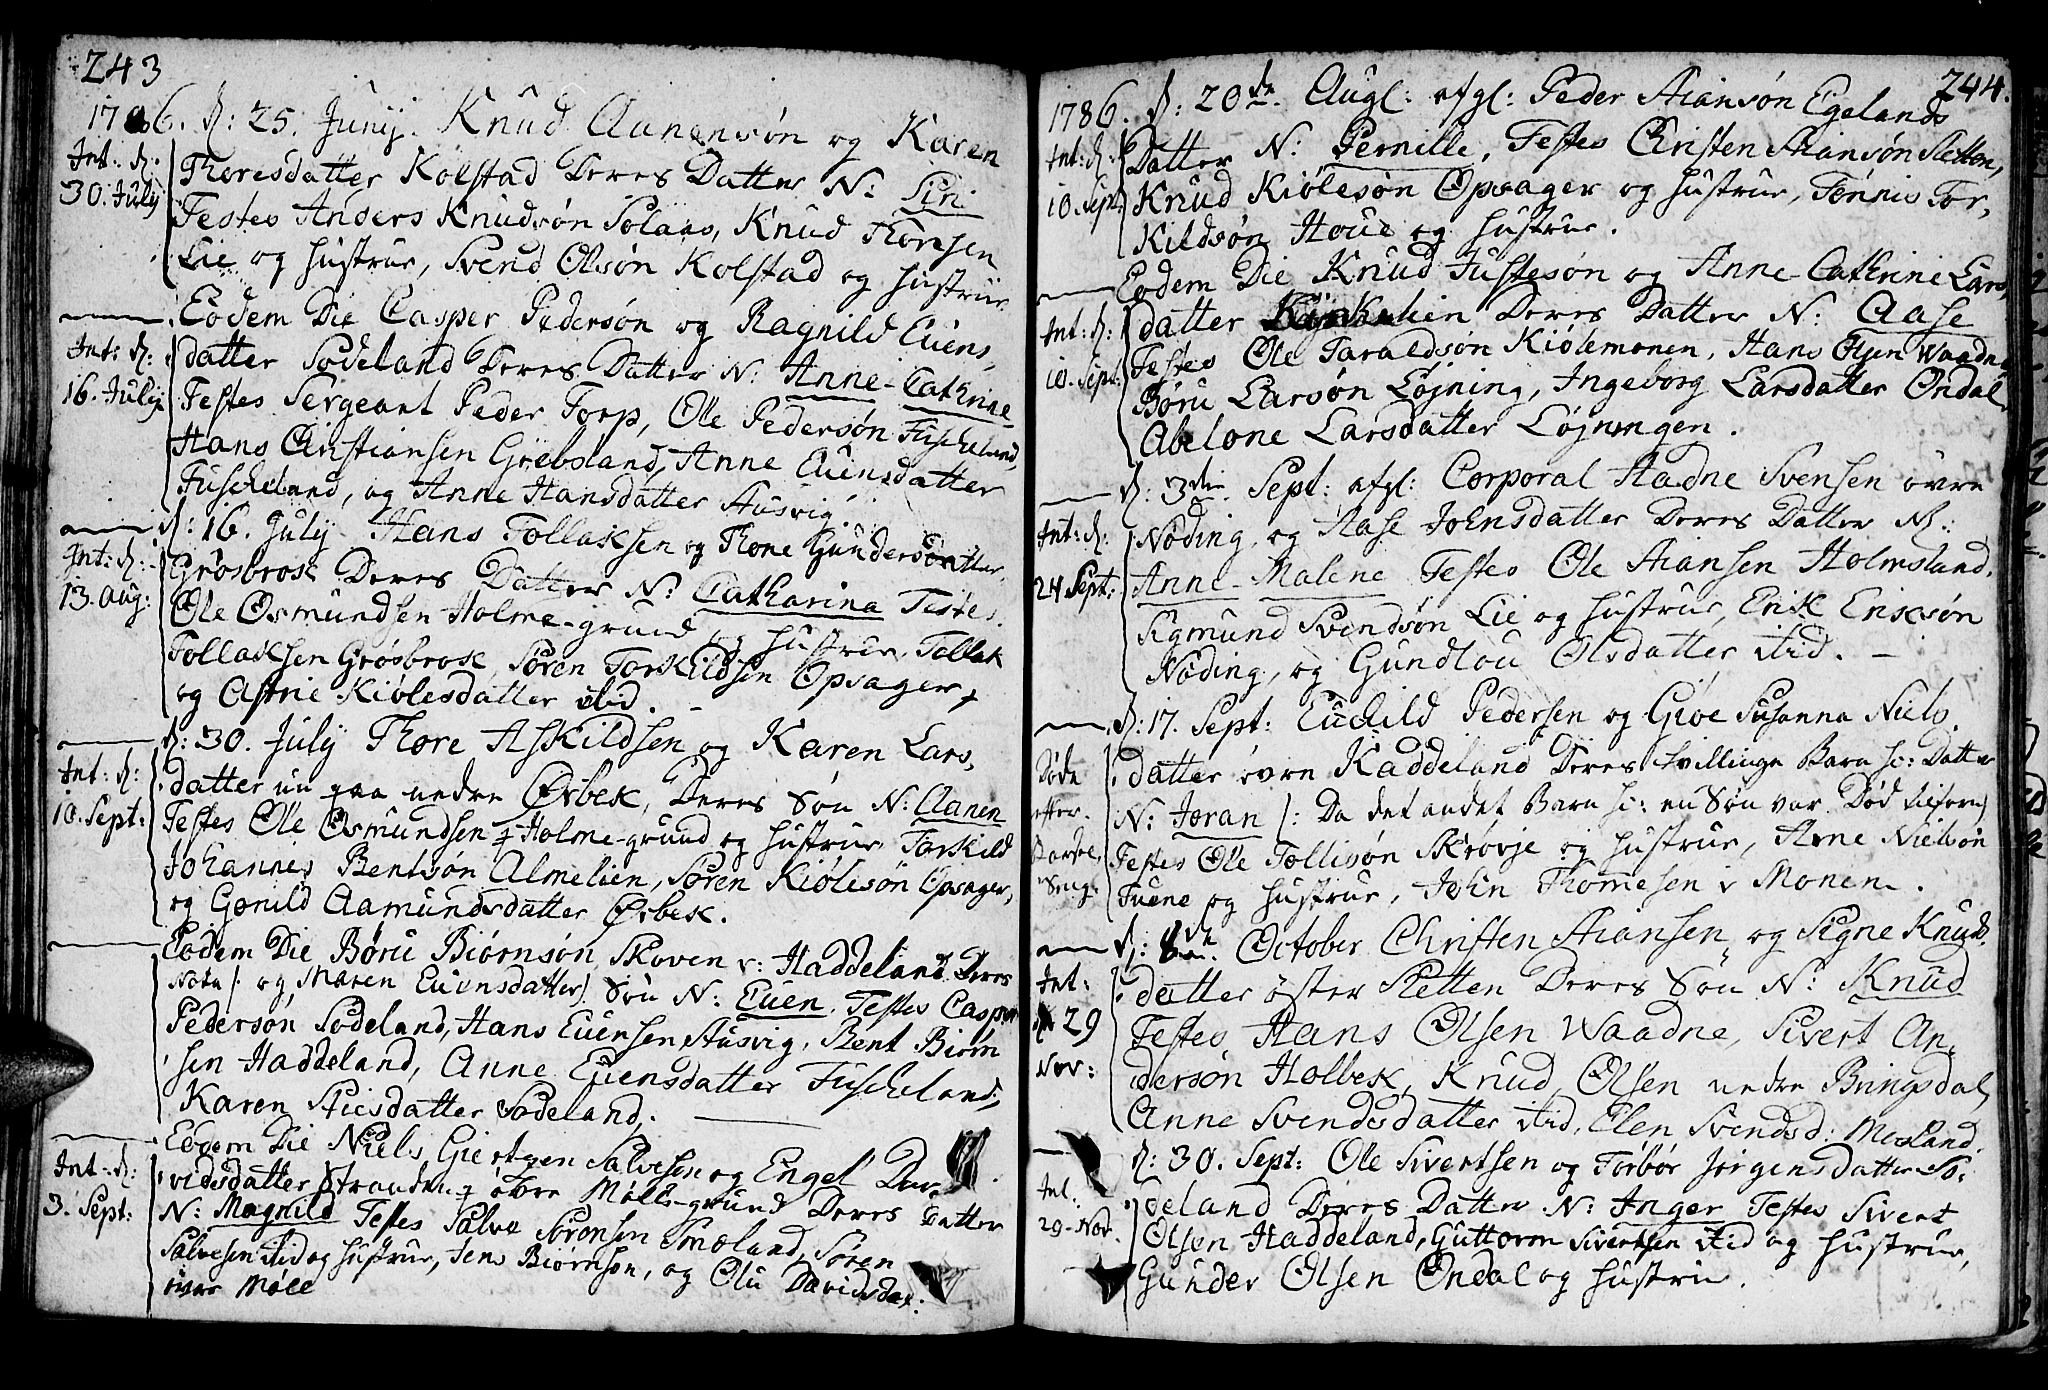 243
1786. d: 25. Junij. Knud Aanensøn og Karen
Int: d: 30. July
Thoresdatter Kolstad Deres Datter N: Siri
Testes Anders Knudsøn Solaas, Knud Thorsen
Lie og hustrue, Svend Olsøn Kolstad og hustrue
Eodem Die Casper Pedersøn og Ragnild Euens,
Int: d: 16. July
datter Sodeland Deres Datter N: Anne-Cathrine
Testes Sergeant Peder Torp, Ole Pedersøn Fuscheland,
Hans Christiansen Grebsland, Anne Euensdatter
Fuscheland, og Anne Hansdatter Ausvig.
d: 16. July Hans Tollaksen og Thone Gundersdatter
Int: d: 13. Aug:
Grøsbrok Deres Datter N: Catharina Testes
Ole Osmundsen Holme-grund og hustrue, Tollak
Tollaksen Grøsbrok, Søren Torkildsen Opsager,
og Astrie Kiølesdatter ibid.
d: 30. July Thore Askildsen og Karen Lars,
Int: d: 10. Sept:
datter nu paa nedre Ørbek, Deres Søn N: Aanen
Testes Ole Osmundsen Holme-grund og hustrue Torkild
Johannes Bentsøn Almelien, Søren Kiølesøn Opsager,
og Gønild Aamundsdatter Ørbek.
Eodem Die Børu Biørnsøn Skoven v: Haddeland Deres
Nota /: og Maren Euensdatter/ Søn N: Euen. Testes Casper
Pedersøn Sodeland, Hans Euensen Ausvig, Bent Biørn
sen Haddeland, Anne Euensdatter Fuscheland,
Karen Aiesdatter Sodeland.
Eodem Die Niels Giertsen Salvesen og Engel Da,
Int: d: 3. Sept:
vidsdatter Stranden øvre Mølle-grund Deres Datter
N: Magnild Testes Salve Sørensen Smeland, Søren
Salvesen ibid og hustrue, Jens Biørnsen, og Olu Davidsdat:
øvre Møll
244.
1786. d: 20de Augl: afgl: Peder Aiansøn Egelands
Int: d: 10. Sept:
Datter N: Pernille, Testes Christen Aiansøn Sletten,
Knud Kiølesøn Opsager og hustrue, Tønnis Tor,
Kildsøn Houe og hustrue.
Eodem Die Knud Justesøn og Anne-Cathrine Lars,
Int: d: 10. Sept:
datter Deres Datter N: Aase
Testes Ole Taraldsøn Kiølemonen, Hans Olsen Waadne,
Børu Larsøn Løjning, Ingeborg Larsdatter Øndal,
Abelone Larsdatter Løjningen.
d: 3die Sept: afgl: Corporal Aadne Svensen øvre
Int: d: 24 Sept:
Nøding, og Aase Johnsdatter Deres Datter N:
Anne-Malene Testes Ole Aiansen Holmsland,
Sigmund Svendsøn Lie og hustrue, Erik Eriksøn
Nøding, og Gundlou Olsdatter ibid. –
d: 17. Sept: Euchild Pedersen og Giøe Susanna Niels,
Døde efter
datter øvre Kaddeland Deres tvillinge Barn sc: Datter
N: Joran /: Da det andet Barn sc: en Søn var Død
Testes Ole Tollisøn Skrøvje og hustrue, Arne Nielsøn
Tuene og hustrue, John Thomesen v Monen.
d: 8de October Christen Aiansen og Signe Knuds,
Int: d 29 Nov:
datter øster Sletten Deres Søn N: Knud
Testes Hans Olsen Waadne, Sivert An,
dersøn Holbek, Knud Olsen nedre Bringsdal,
Anne Svendsdatter ibid, Elen Svendsd: Mosland.
d: 30. Sept: Ole Sivertsen og Torbør Jørgensdatter So,
Int. 29-Nov.
deland Deres Datter N: Inger Testes Sivert
Olsen Haddeland, Guttorm Sivertsen ibid og hustrue,
Gunder Olsen Øndal og hustrue.